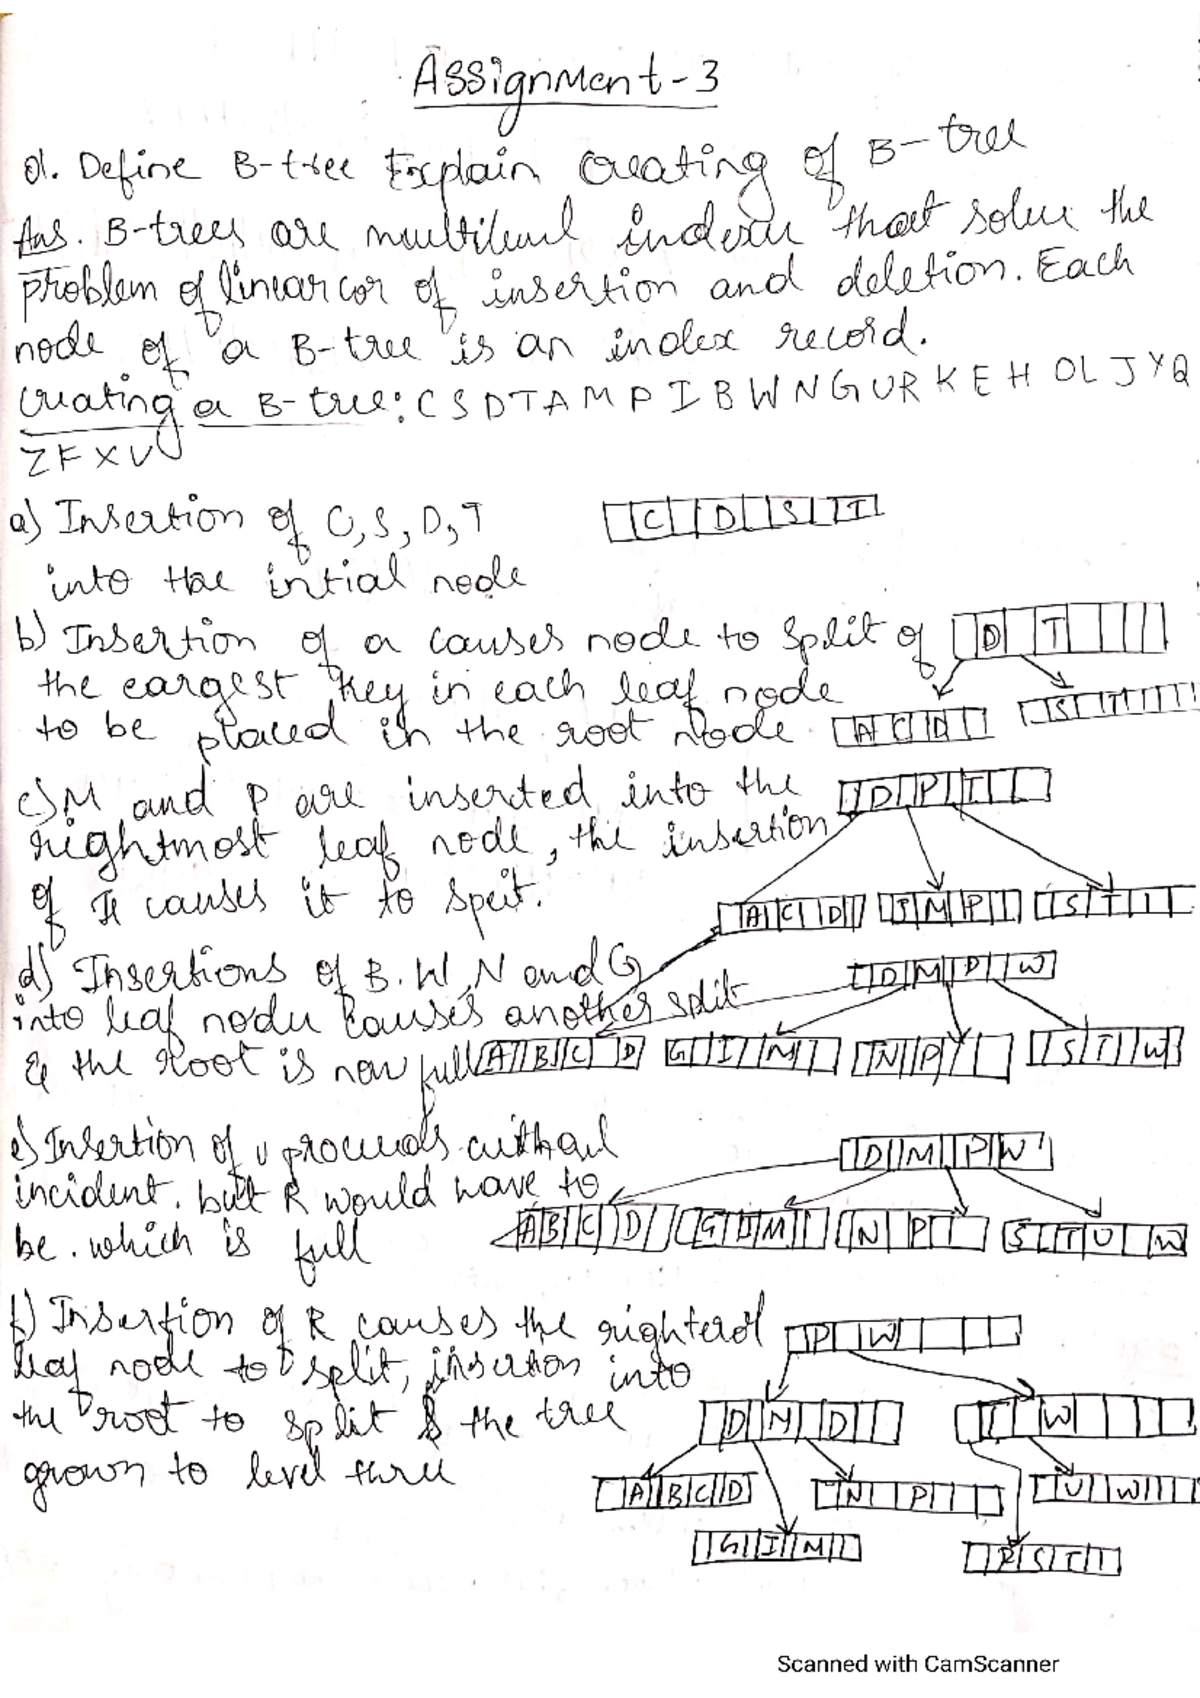 Assignment-3
Q1. Define B-tree Explain Creating of B-tree
Ans. B-trees are multilevel indexes that solve the
problem of linear cor of insertion and deletion. Each
node of a B-tree is an index record.
Creating a B-tree: C S D T A M P I B W N G U R K E H O L J Y Q
Z F X V
a) Insertion of C, S, D, T
C D S T
into the intial node
b) Insertion of a causes node to split of
D T
the largest key in each leaf node
to be placed in the root node
A C D
S T
c) M and P are inserted into the
D P T
rightmost leaf node, the insertion
of I causes it to split.
A C D
I M P
S T
d) Insertions of B. W, N and G
D M P W
into leaf nodes causes another split
& the root is now full
A B C D
G I M
N P
S T W
e) Insertion of U proceeds without
D M P W
incident. but R would have to
be. which is full
A B C D
G I M
N P
S T U W
f) Insertion of R causes the
P W
leaf node to split, insertion into
the root to split & the tree
D M D
T W
grown to level three
A B C D
N P
U W
G I M
R S T
Scanned with CamScanner